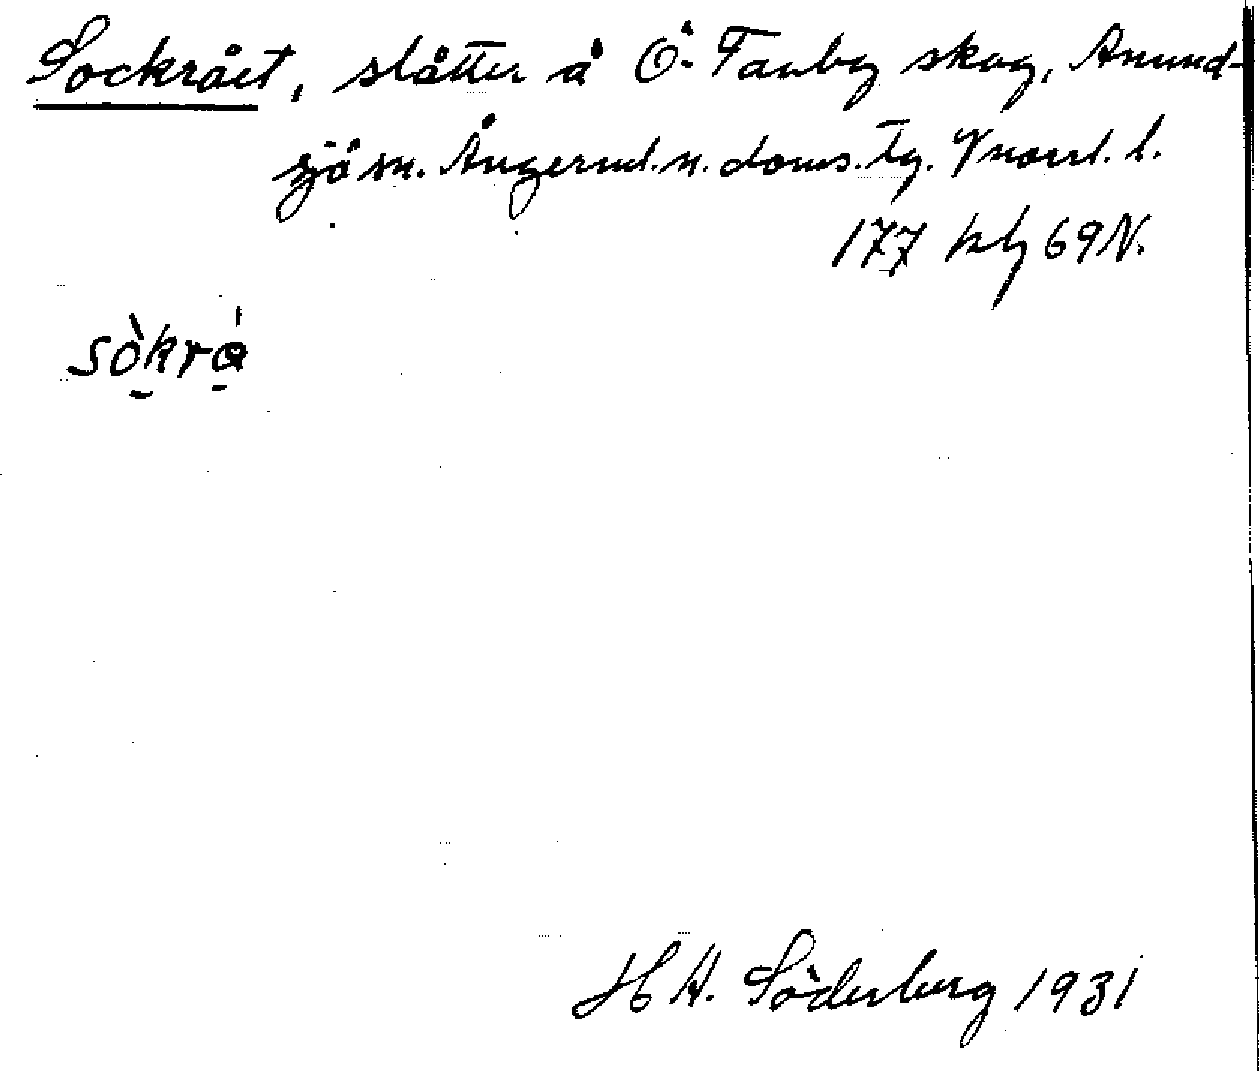 Sockrået, slåtter å Ö. Tanby skog, Anund-
sjö sn. Ångerml. n. doms. tg. Vnorrl. l.
177 kbj 69N.
sòkrá
H A. Söderberg 1931